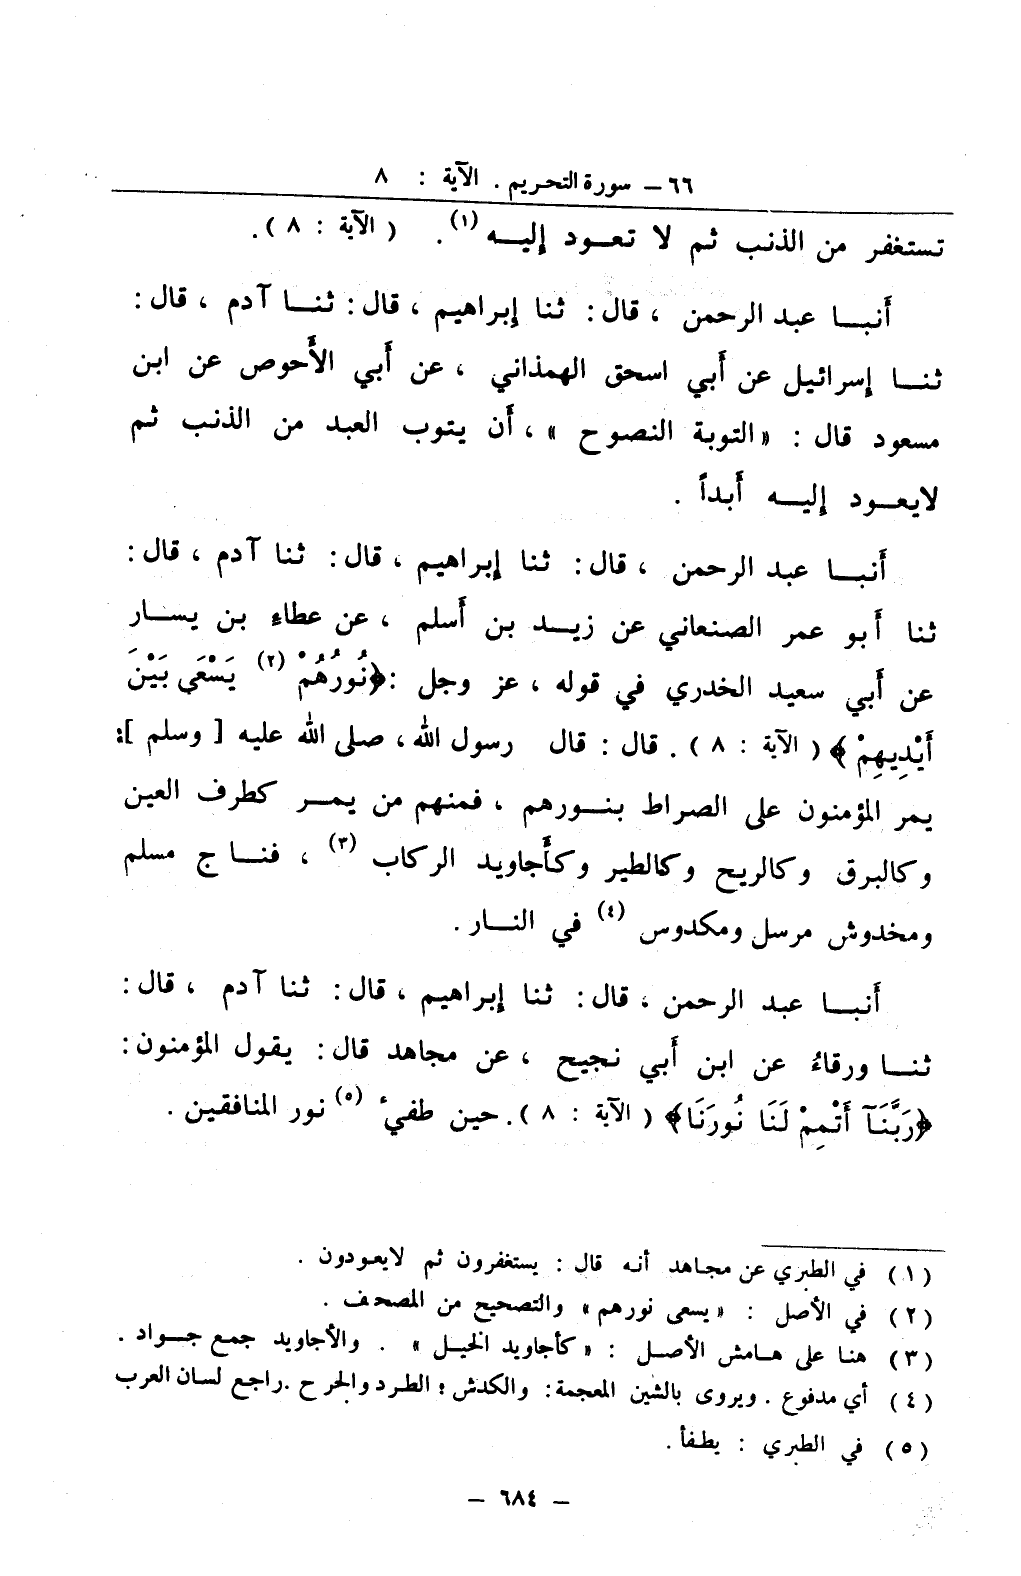 ٦٦ – سورة التحريم . الآية : ٨
تستغفر من الذنب ثم لا تعـود إليـه (١) . ( الآية : ٨ ) .
أَنبـا عبد الرحمن ، قال : ثنا إبراهيم ، قال : ثنـا آدم ، قال :
ثنـا إسرائيل عن أَبي اسحق الهمذاني ، عن أَبي الأَحوص عن ابن
مسعود قال : « التوبة النصوح » ، أَن يتوب العبد من الذنب ثم
لايعـود إليـه أَبداً .
أَنبـا عبد الرحمن ، قال : ثنا إبراهيم ، قال : ثنا آدم ، قال :
ثنا أَبو عمر الصنعاني عن زيـد بن أَسلم ، عن عطاءِ بن يسـار
عن أَبي سعيد الخدري في قوله ، عز وجل : ﴿نُورُهُمْ (٢) يَسْعَى بَيْنَ
أَيْدِيهِمْ﴾ ( الآية : ٨ ) . قال : قال رسول الله ، صلى الله عليه [ وسلم ] :
يمر المؤمنون على الصراط بنـورهم ، فمنهم من يمـر كطرف العين
وكالبرق وكالريح وكالطير وكأَجاويد الركاب (٣) ، فنـاج مسلم
ومخدوش مرسل ومكدوس (٤) في النـار .
أَنبـا عبد الرحمن ، قال : ثنا إبراهيم ، قال : ثنا آدم ، قال :
ثنـا ورقاءُ عن ابن أَبي نجيح ، عن مجاهد قال : يقول المؤمنون :
﴿رَبَّنَآ أَتْمِمْ لَنَا نُورَنَا﴾ ( الآية : ٨ ) . حين طفيء (٥) نور المنافقين .
(١) في الطبري عن مجاهد أنه قال : يستغفرون ثم لايعودون .
(٢) في الأصل : « يسعى نورهم » والتصحيح من المصحف .
(٣) هنا على هـامش الأصـل : « كأجاويد الخيـل » . والأجاويد جمع جـواد .
(٤) أي مدفوع . ويروى بالشين المعجمة : والكدش : الطرد والجرح . راجع لسان العرب
(٥) في الطبري : يطفأ .
– ٦٨٤ –